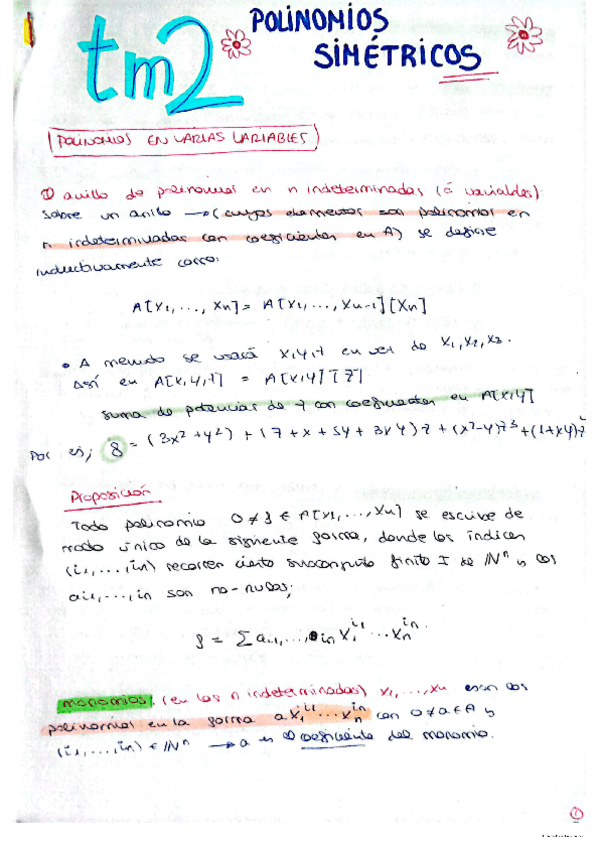 tm2
POLINOMIOS
SIMÉTRICOS
POLINOMIOS EN VARIAS VARIABLES
El anillo de polinomios en n indeterminadas (ó variables)
sobre un anillo → (cuyos elementos son polinomios en
n indeterminadas con coeficientes en A) se define
inductivamente como:
A[X1, ..., Xn] = A[X1, ..., Xn-1][Xn]
• A menudo se usará X,Y,Z en vez de X1, X2, X3.
Así en A[X,Y,Z] = A[X,Y][Z]
suma de potencias de Z con coeficientes en A[X,Y]
Por ej; f = (3x²+y²) + (7 + x + 5y + 3xy)z + (x²-y)z³ + (1+xy)z
Proposición
Todo polinomio 0 ≠ f ∈ A[X1, ..., Xn] se escribe de
modo único de la siguiente forma, donde los índices
(i1, ..., in) recorren cierto subconjunto finito I de ℕⁿ y los
ai1, ..., in son no-nulos;
f = Σ ai1, ..., in X1^i1 ... Xn^in.
monomios: (en las n indeterminadas) X1, ..., Xn son los
polinomios en la forma a X1^i1 ... Xn^in con 0 ≠ a ∈ A y
(i1, ..., in) ∈ ℕⁿ → a es el coeficiente del monomio.
1